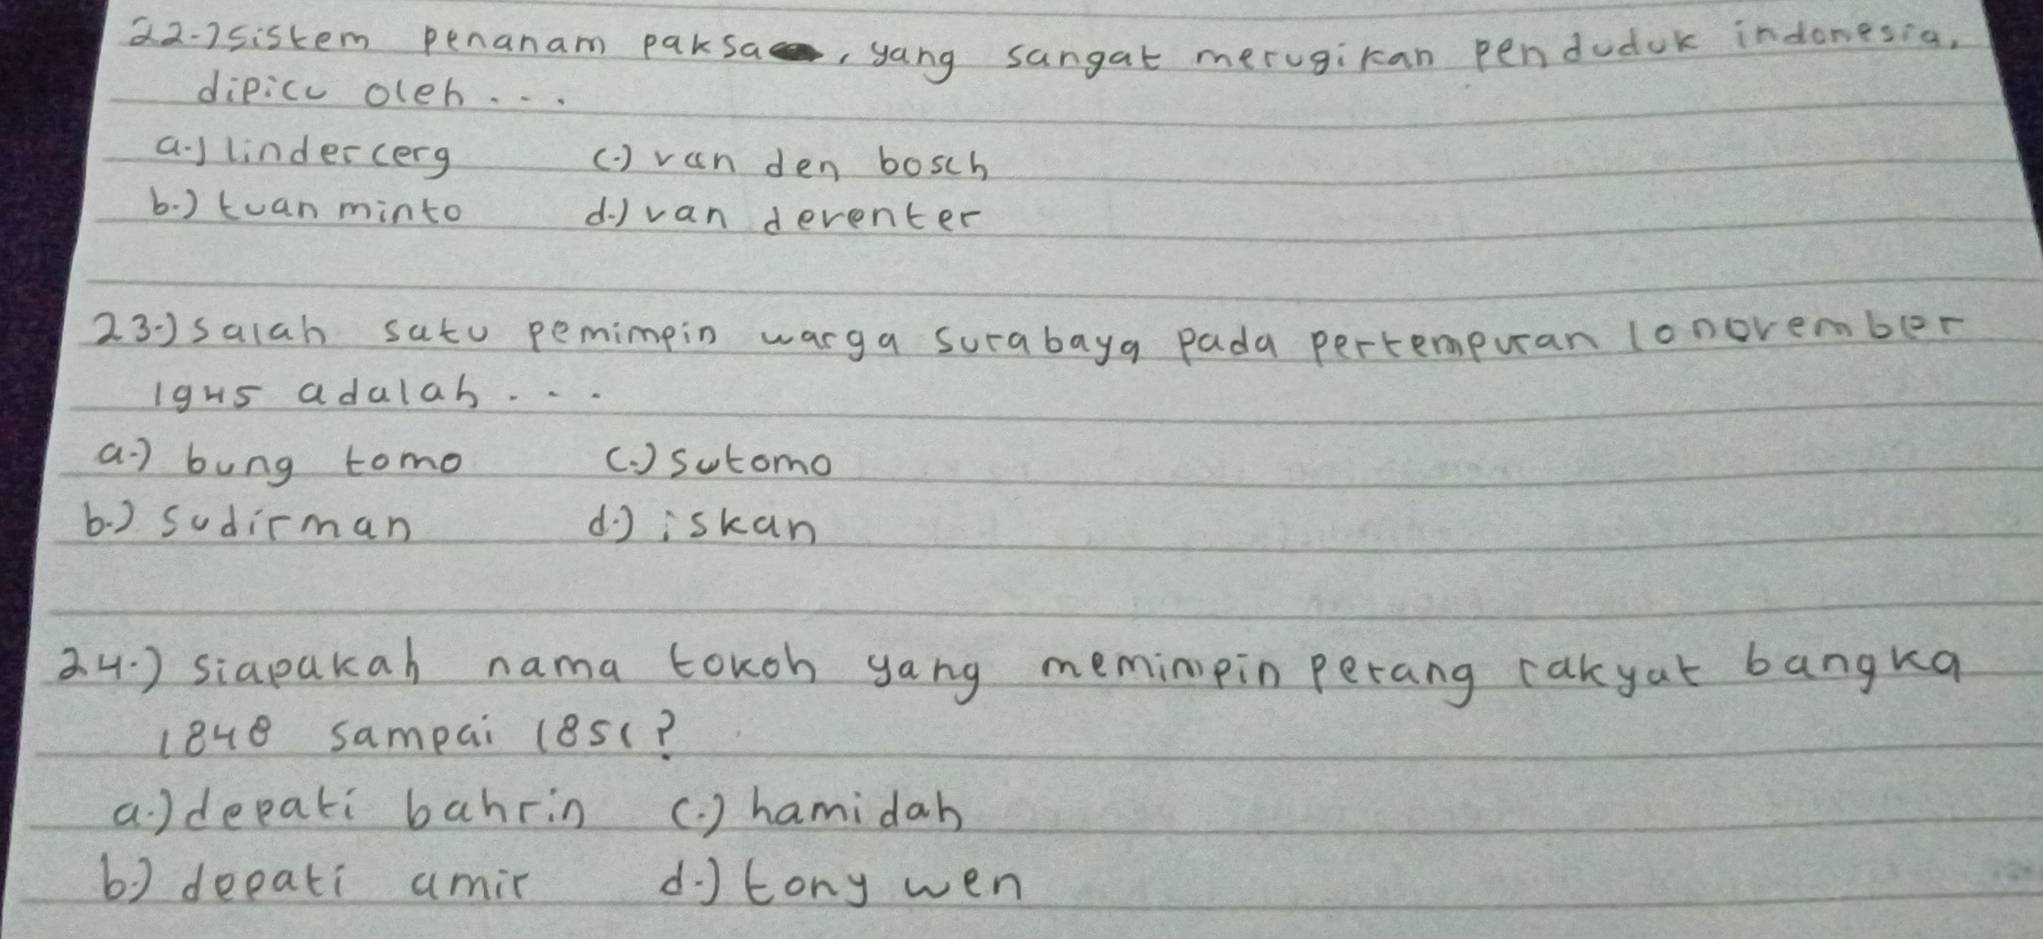 22.) sistem penanam paksa, yang sangat merugikan penduduk indonesia,
dipicu oleh...
a.) lindercerg c.) van den bosch
b.) tuan minto d.) van deventer
23.) salah satu pemimpin warga surabaya pada pertempuran 10 november
1945 adalah...
a.) bung tomo c.) sutomo
b.) sudirman d.) iskan
24.) siapakah nama tokoh yang memimpin perang rakyat bangka
1848 sampai 1851?
a.) depati bahrin c.) hamidah
b.) depati amir d.) tony wen